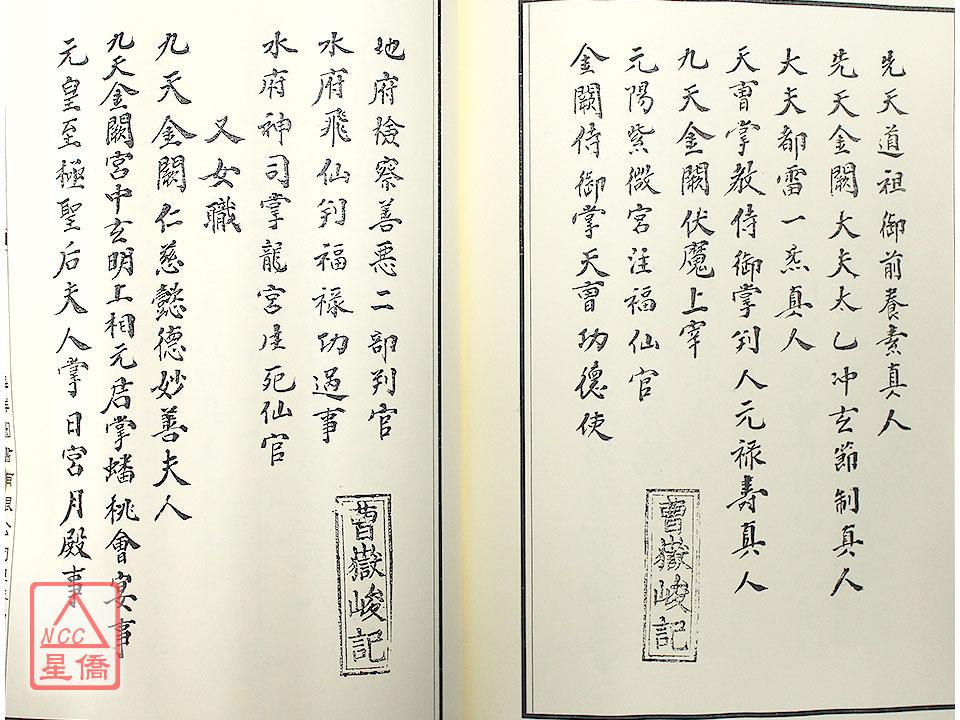 先天道祖御前養素真人
先天金闕大夫太乙冲玄節制真人
大夫都雷一炁真人
天曹掌教侍御掌判人元禄壽真人
九天金闕伏魔上宰
元陽紫微宮注福仙官
金闕侍御掌天曹功德使
曹嶽峻記
地府檢察善悪二部判官
水府飛仙判福禄功過事
水府神司掌龍宮生死仙官
又女職
九天金闕仁慈懿德妙善夫人
九天金闕宮中玄明上相元君掌蟠桃會宴事
元皇至極聖后夫人掌日宮月殿事
曹嶽峻記
NCC
星僑